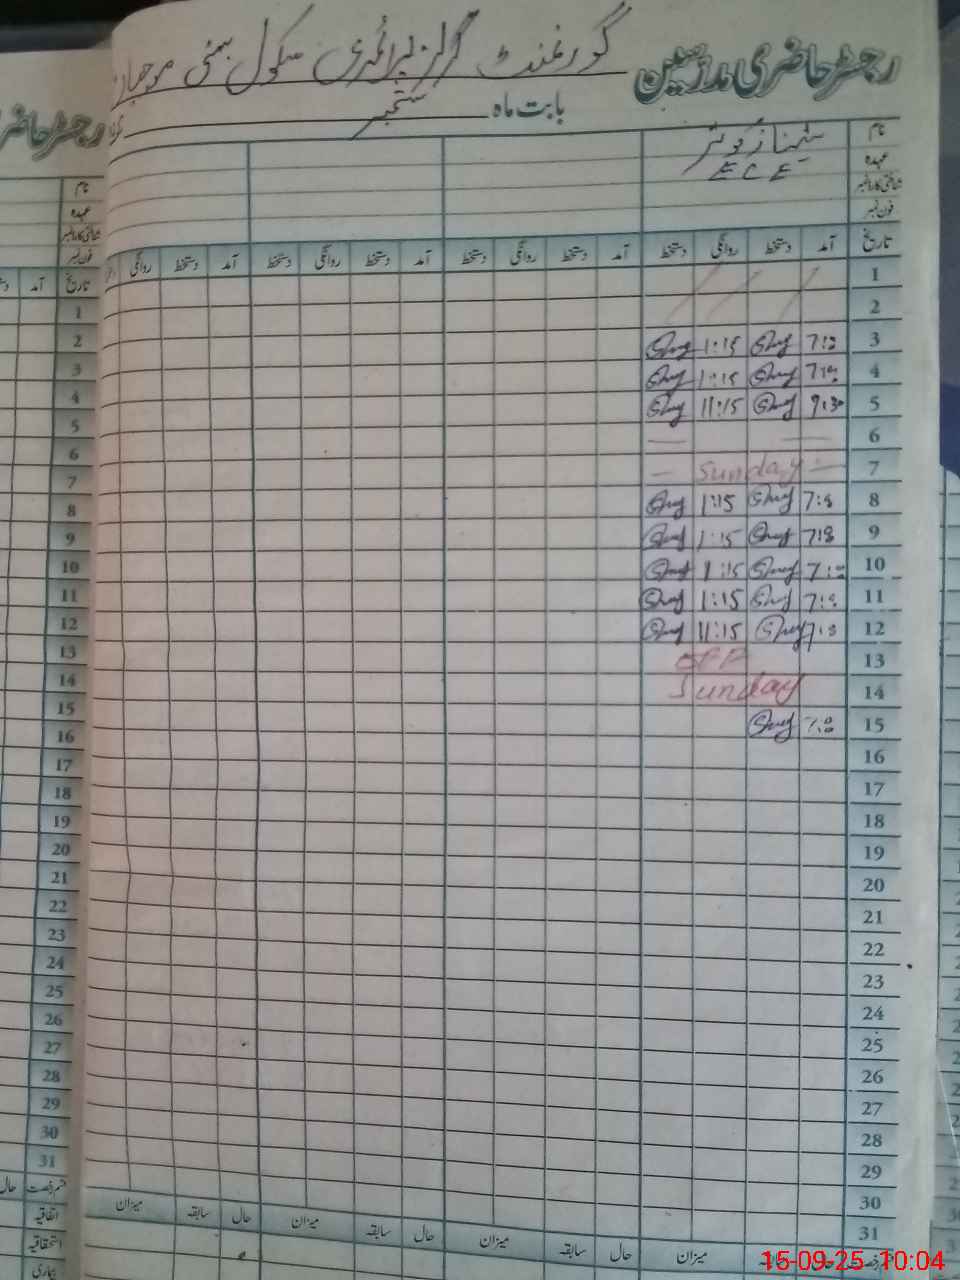 رجسٹر حاضری مدرسین گورنمنٹ گرلز پرائمری سکول
بابت ماہ ستمبر
نام شہناز کوثر
عہدہ ECE
شناختی کارڈ نمبر
فون نمبر
تاریخ آمد دستخط روانگی دستخط آمد دستخط روانگی دستخط آمد دستخط روانگی دستخط آمد دستخط روانگی
1
2
3 1:15
4 1:15
5 9:30 11:15
6
7 Sunday
8 7:8 1:15
9 7:8 1:15
10 1:15
11 1:15
12 11:15
13 OFF
14 Sunday
15
16
17
18
19
20
21
22
23
24
25
26
27
28
29
30
31
حال میزان حال سابقہ میزان حال سابقہ میزان حال سابقہ میزان
رجسٹر حاضر
نام
عہدہ
شناختی کارڈ نمبر
فون نمبر
تاریخ آمد
1
2
3
4
5
6
7
8
9
10
11
12
13
14
15
16
17
18
19
20
21
22
23
24
25
26
27
28
29
30
31
قسم رخصت حال
اتفاقیہ
استحقاقیہ
بیماری
15-09-25 10:04